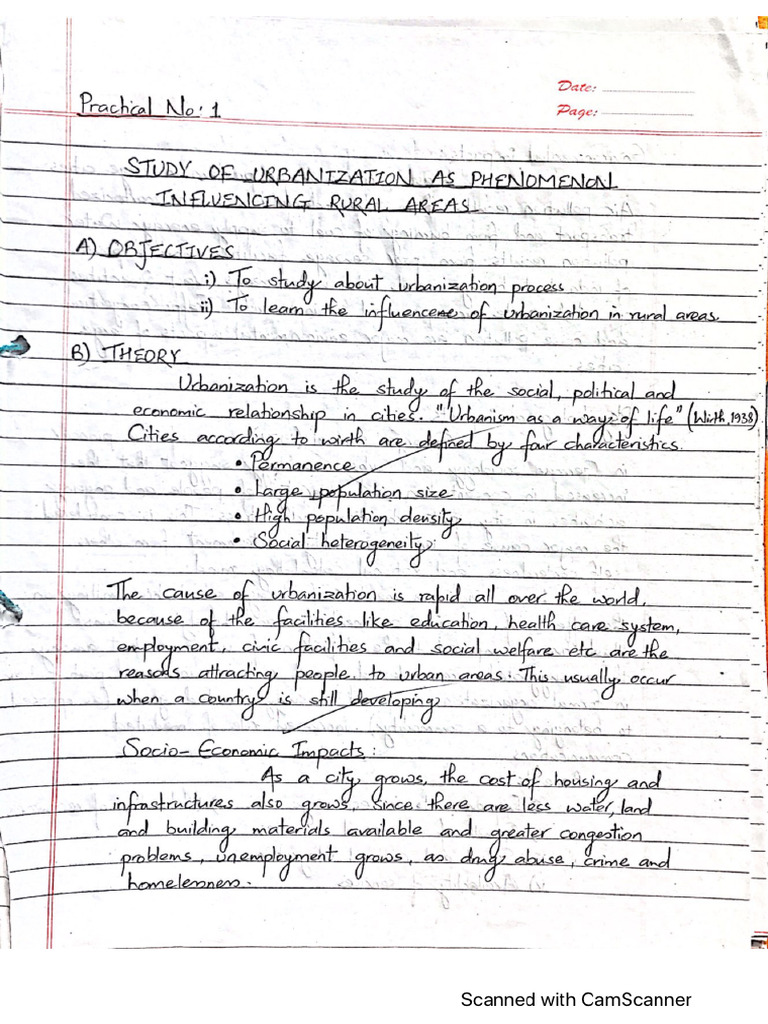 Date:
Practical No: 1
Page:
STUDY OF URBANIZATION AS PHENOMENON
INFLUENCING RURAL AREAS
A) OBJECTIVES
i) To study about urbanization process
ii) To learn the influence of urbanization in rural areas.
B) THEORY
Urbanization is the study of the social, political and
economic relationship in cities. "Urbanism as a way of life" (Wirth, 1938)
Cities according to wirth are defined by four characteristics.
• Permanence
• Large population size
• High population density
• Social heterogeneity.
The cause of urbanization is rapid all over the world,
because of the facilities like education, health care system,
employment, civic facilities and social welfare etc are the
reasons attracting people to urban areas. This usually occur
when a country is still developing
Socio-Economic Impacts:
As a city grows, the cost of housing and
infrastructures also grows, since there are less water, land
and building materials available and greater congestion
problems, unemployment grows, as drug abuse, crime and
homelessness.
Scanned with CamScanner